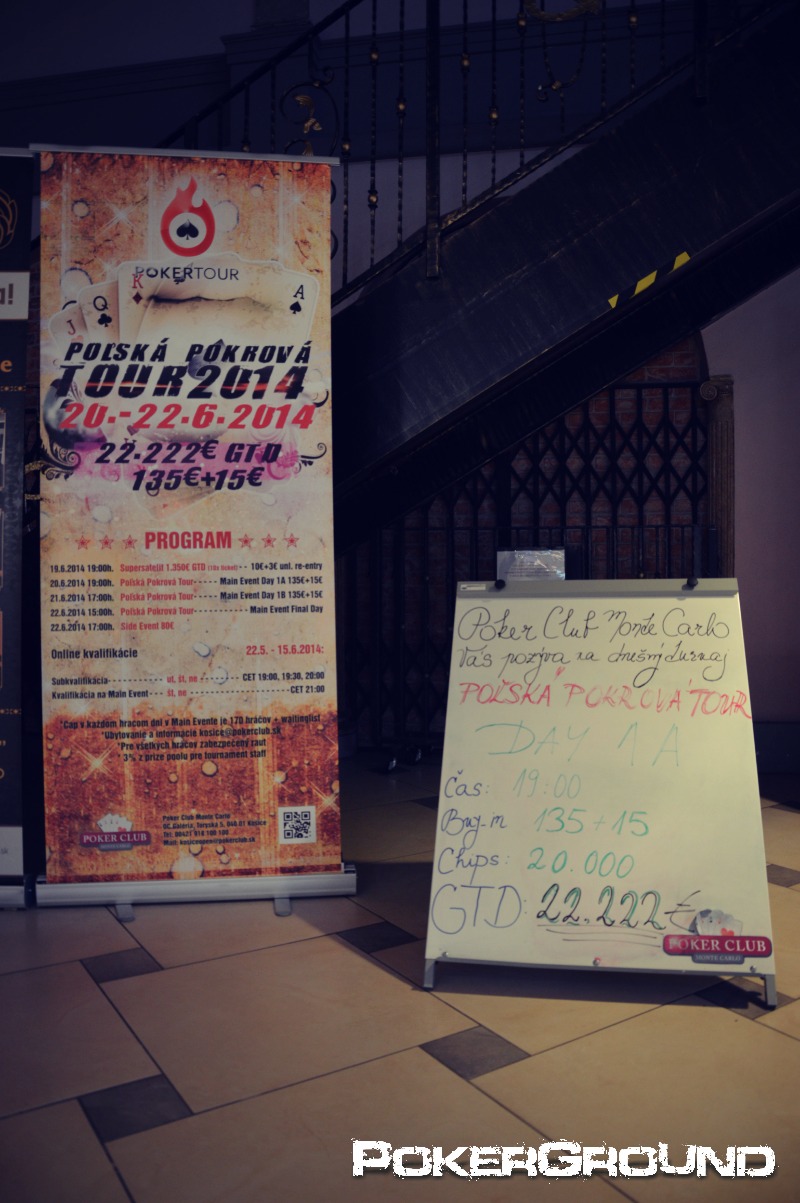 POKERTOUR
J
Q
K
A
POĽSKÁ POKROVÁ
TOUR 2014
20.-22.6.2014
22.222€ GTD
135€+15€
★ ★ ★ PROGRAM ★ ★ ★
19.6.2014 19:00h. Supersatelit 1.350€ GTD (10x ticket) - - 10€+3€ unl. re-entry
20.6.2014 19:00h. Poľská Pokrová Tour - - - - - Main Event Day 1A 135€+15€
21.6.2014 17:00h. Poľská Pokrová Tour - - - - - Main Event Day 1B 135€+15€
22.6.2014 15:00h. Poľská Pokrová Tour - - - - - - - - - - - Main Event Final Day
22.6.2014 17:00h. Side Event 80€
Online kvalifikácie 22.5. - 15.6.2014:
Subkvalifikácia - - - - - - - - - - ut, št, ne - - - - - - - CET 19:00, 19:30, 20:00
Kvalifikácia na Main Event - - - št, ne - - - - - - - - - - - - - - - - - - - - CET 21:00
*Cap v každom hracom dni v Main Evente je 170 hráčov + waitinglist
*Ubytovanie a informácie kosice@pokerclub.sk
*Pre všetkých hráčov zabezpečený raut
* 3% z prize poolu pre tournament staff
POKER CLUB
MONTE CARLO
Poker Club Monte Carlo
OC Galéria, Toryská 5, 040 01 Košice
Tel: 00421 918 100 100
a!
e
Poker Club Monte Carlo
Vás pozýva na dnešný turnaj
POĽSKÁ POKROVÁ TOUR
DAY 1A
Čas: 19:00
Buy-in 135 + 15
Chips: 20.000
GTD: 22.222 €
POKER CLUB
MONTE CARLO
POKERGROUND